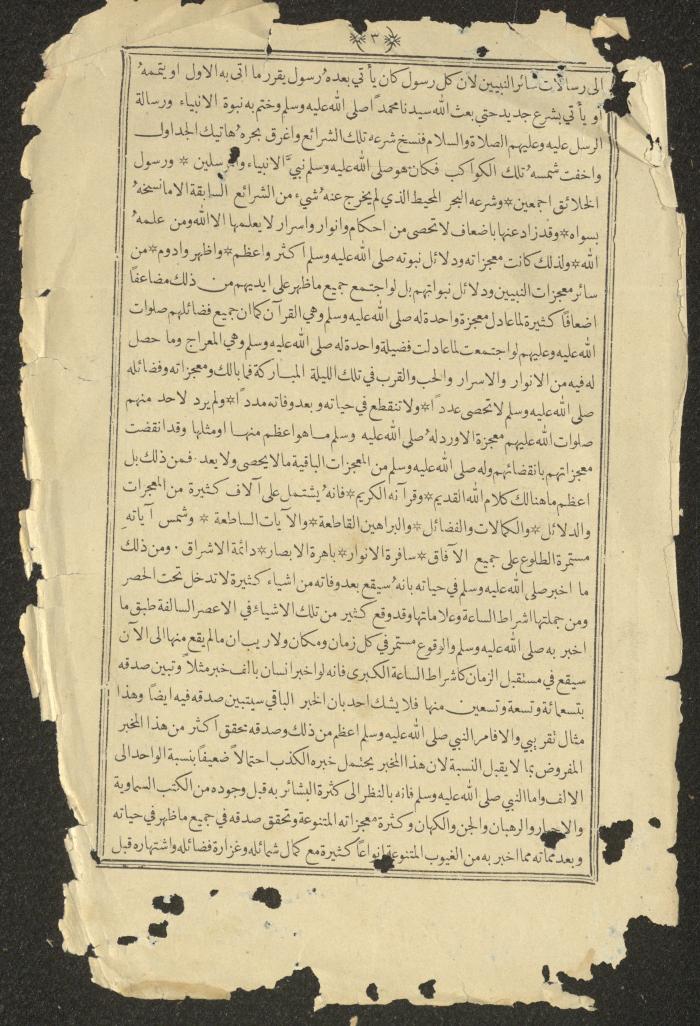 ٣
الى رسالات سائر النبيين لان كل رسول كان يأتي بعده رسول يقرر ما اتى به الاول او يتممه
او يأتي بشرع جديد حتى بعث الله سيدنا محمدًا صلى الله عليه وسلم وختم به نبوة الانبياء ورسالة
الرسل عليه وعليهم الصلاة والسلام فنسخ شرعه تلك الشرائع واغرق بحره هاتيك الجداول
واخفت شمسه تلك الكواكب فكان هو صلى الله عليه وسلم نبيَّ الانبياء والمرسلين * ورسول
الخلائق اجمعين * وشرعه البحر المحيط الذي لم يخرج عنه شيء من الشرائع السابقة الا ما نسخه
بسواه * وقد زاد عنها باضعاف لا تحصى من احكام وانوار واسرار لا يعلمها الا الله ومن علمه
الله * ولذلك كانت معجزاته ودلائل نبوته صلى الله عليه وسلم أكثر واعظم * واظهر وادوم * من
سائر معجزات النبيين ودلائل نبواتهم بل لو اجتمع جميع ما ظهر على ايديهم من ذلك مضاعفًا
اضعافًا كثيرة لما عادل معجزة واحدة له صلى الله عليه وسلم وهي القرآن كما ان جميع فضائلهم صلوات
الله عليه وعليهم لو اجتمعت لما عادلت فضيلة واحدة له صلى الله عليه وسلم وهي المعراج وما حصل
له فيه من الانوار والاسرار والحب والقرب في تلك الليلة المباركة فما بالك ومعجزاته وفضائله
صلى الله عليه وسلم لا تحصى عددًا * ولا تنقطع في حياته وبعد وفاته مددًا * ولم يرد لاحد منهم
صلوات الله عليهم معجزة الا ورد له صلى الله عليه وسلم ما هو اعظم منها او مثلها وقد انقضت
معجزاتهم بانقضائهم وله صلى الله عليه وسلم من المعجزات الباقية ما لا يحصى ولا يعد . فمن ذلك بل
اعظم ما هنالك كلام الله القديم * وقرآنه الكريم * فانه يشتمل على آلاف كثيرة من المعجزات
والدلائل * والكمالات والفضائل * والبراهين القاطعة * والآيات الساطعة * وشمس آياته
مستمرة الطلوع على جميع الآفاق * سافرة الانوار * باهرة الابصار * دائمة الاشراق . ومن ذلك
ما اخبر صلى الله عليه وسلم في حياته بانه سيقع بعد وفاته من اشياء كثيرة لا تدخل تحت الحصر
ومن جملتها اشراط الساعة وعلاماتها وقد وقع كثير من تلك الاشياء في الاعصر السالفة طبق ما
اخبر به صلى الله عليه وسلم والوقوع مستمر في كل زمان ومكان ولا ريب ان ما لم يقع منها الى الآن
سيقع في مستقبل الزمان كاشراط الساعة الكبرى فانه لو اخبر انسان بالف خبر مثلاً وتبين صدقه
بتسعمائة وتسعة وتسعين منها فلا يشك احد بان الخبر الباقي سيتبين صدقه فيه ايضًا وهذا
مثال تقريبي والا فامر النبي صلى الله عليه وسلم اعظم من ذلك وصدقه تحقق اكثر من هذا المخبر
المفروض بما لا يقبل النسبة لان هذا المخبر يحتمل خبره الكذب احتمالاً ضعيفًا بنسبة الواحد الى
الالف واما النبي صلى الله عليه وسلم فانه بالنظر الى كثرة البشائر به قبل وجوده من الكتب السماوية
والاحبار والرهبان والجن والكهان وكثرة معجزاته المتنوعة وتحقق صدقه في جميع ما ظهر في حياته
وبعد مماته مما اخبر به من الغيوب المتنوعة انواعًا كثيرة مع كمال شمائله وغزارة فضائله واشتهاره قبل